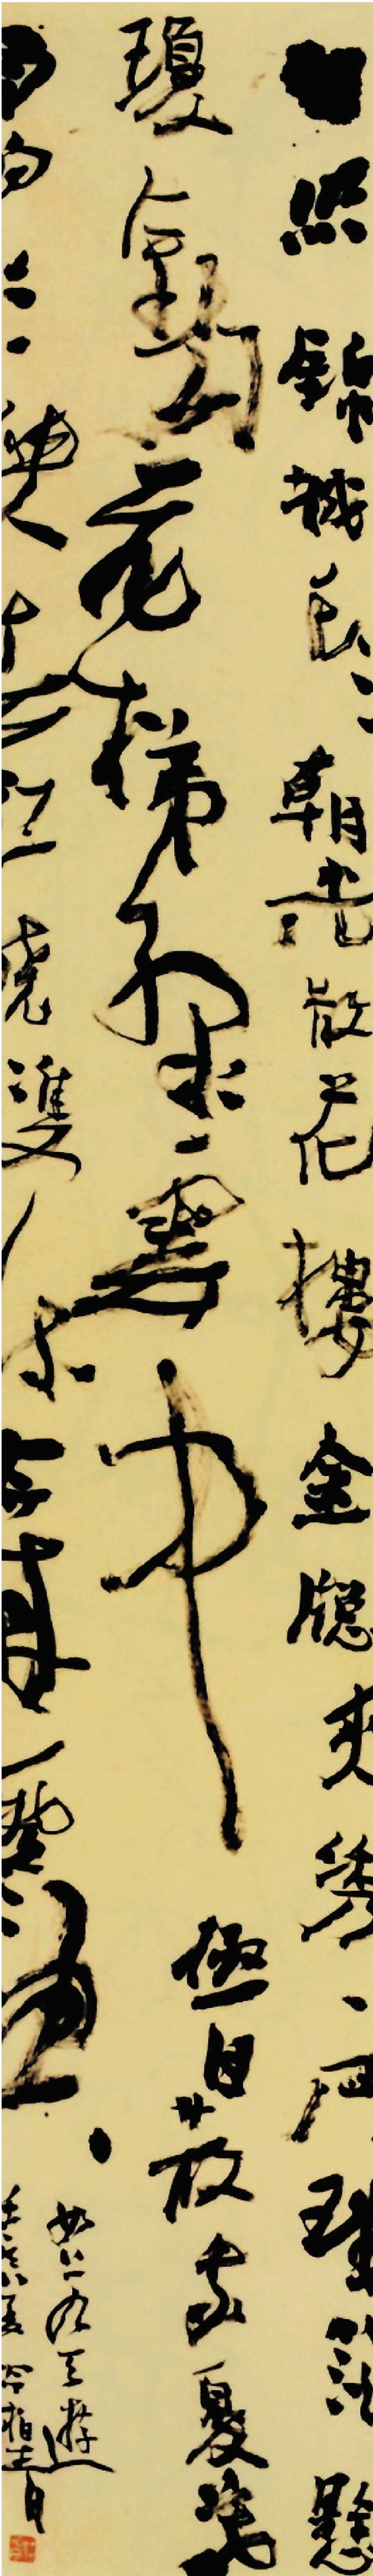 日照錦城頭朝光散花樓金牕夾繡戶珠箔懸
瓊鉤飛梯綠雲中極目散我憂暮
雨向三峽春江繞雙流今來一登望
如上九天遊
壬寅夏